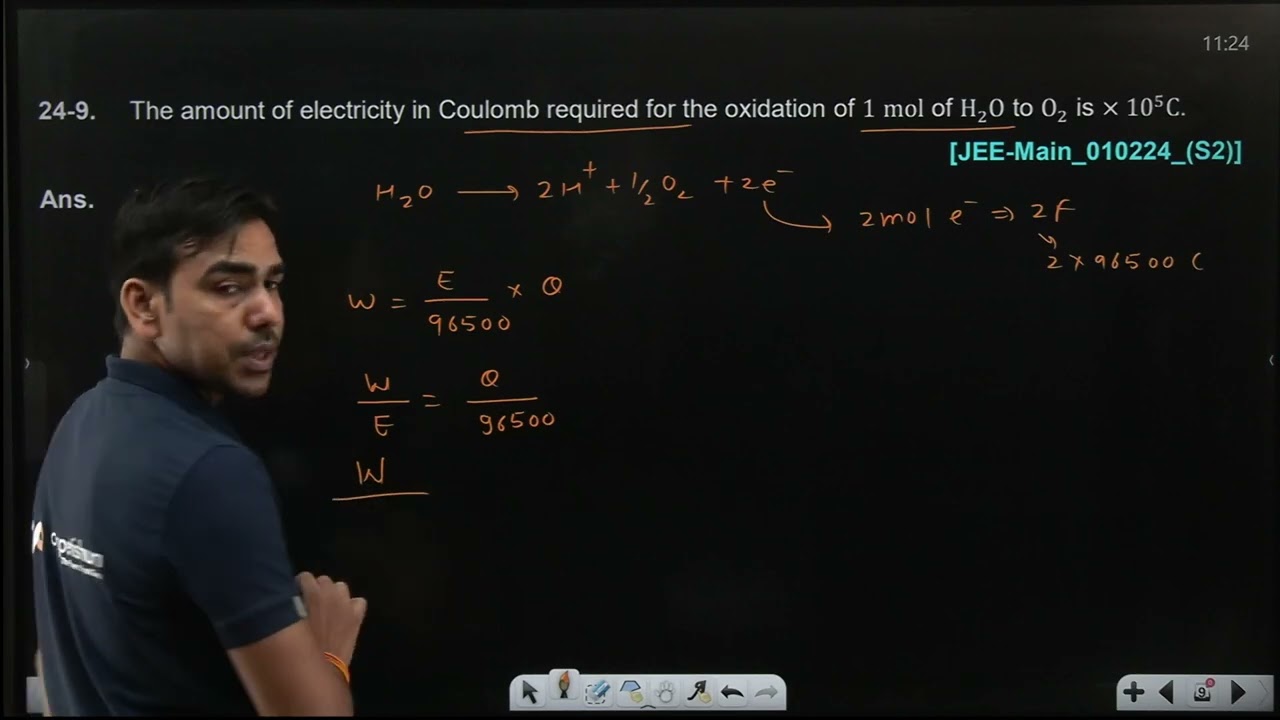 11:24
24-9. The amount of electricity in Coulomb required for the oxidation of 1 mol of H₂O to O₂ is × 10⁵C.
[JEE-Main_010224_(S2)]
Ans.
H₂O ⟶ 2H⁺ + 1/2 O₂ + 2e⁻
2 mol e⁻ ⇒ 2F
2 × 96500 C
W = E/96500 × Q
W/E = Q/96500
W
9